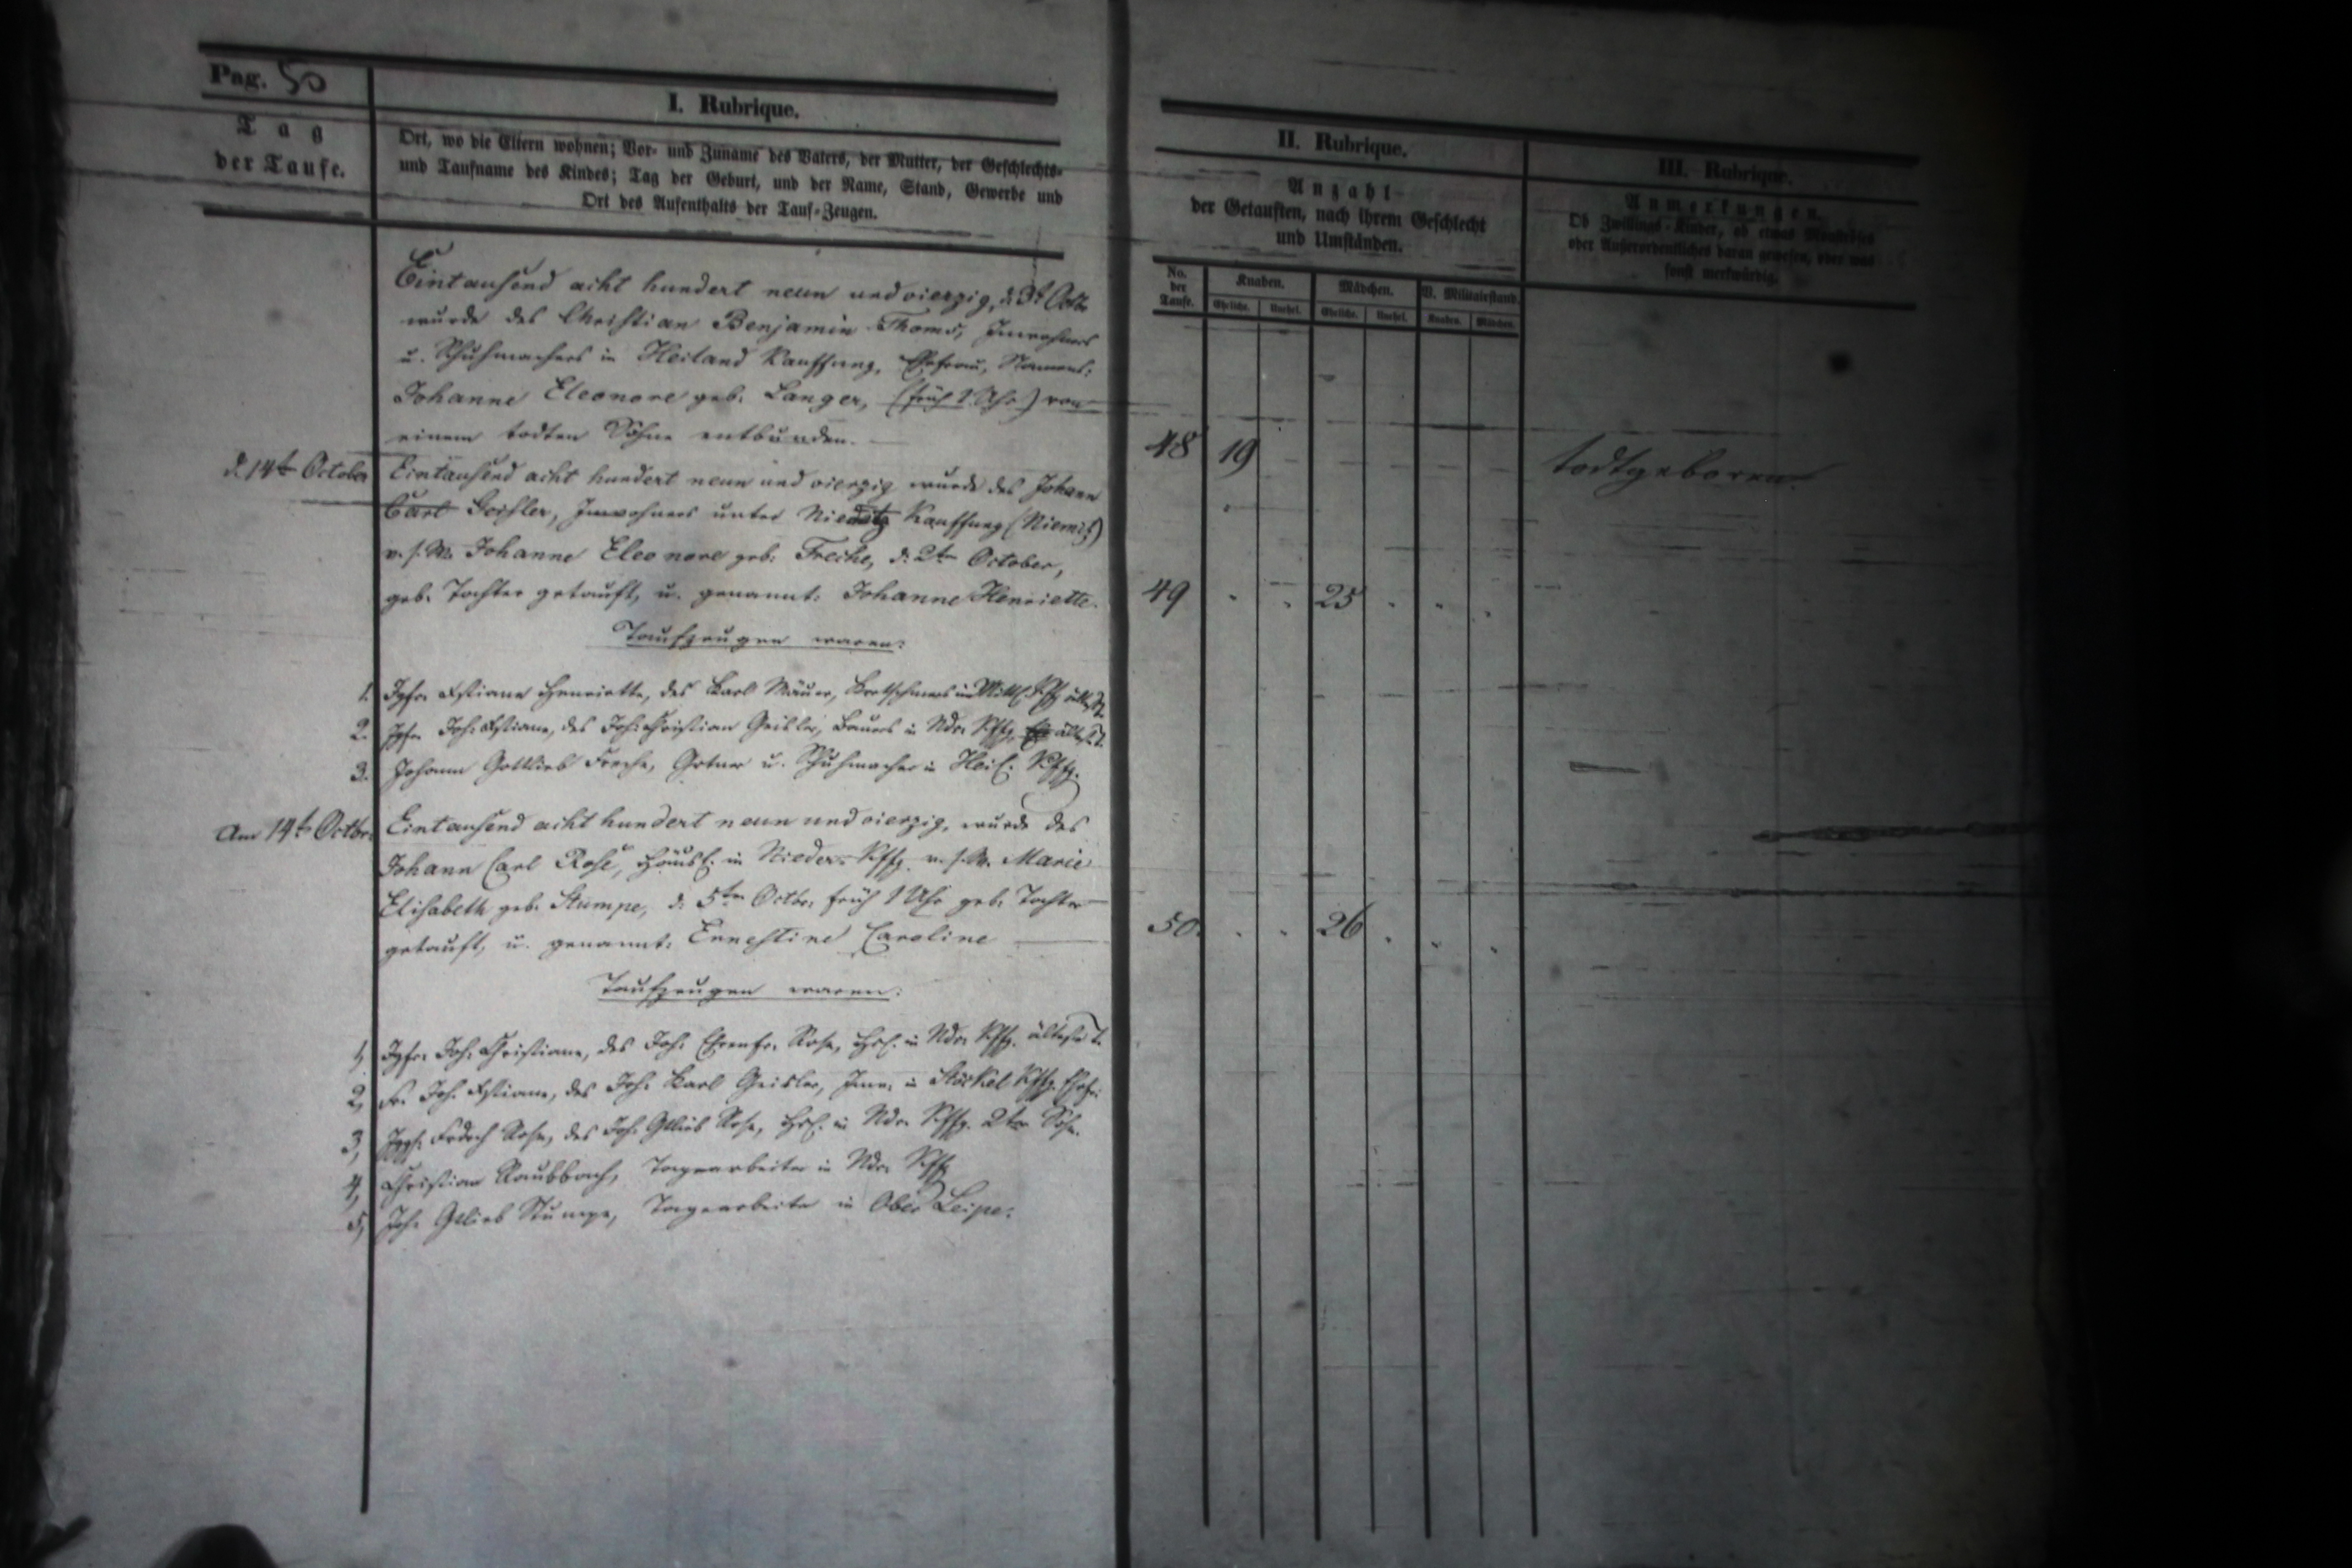 Pag. 50
Tag
der Taufe.
I. Rubrique.
Ort, wo die Eltern wohnen; Vor- und Zuname des Vaters, der Mutter, der Geschlechts-
und Taufname des Kindes; Tag der Geburt, und der Name, Stand, Gewerbe und
Ort des Aufenthalts der Tauf-Zeugen.
Eintausend acht hundert neun und vierzig, d. 3t Octbr
wurde des Christian Benjamin Thoms, Inwohners
u. Schuhmachers in Heiland Kauffung, Ehefrau, Namens:
Johanne Eleonore geb. Langer, (früh 1 Uhr) von
einem todten Sohne entbunden.
d. 14t October
Eintausend acht hundert neun und vierzig wurde des Johann
Carl Geisler, Inwohners unter Kauffung (Niemitz)
v. s. W. Johanne Eleonore geb. Freche, d. 2ten October,
geb. Tochter getauft, u. genannt: Johanne Henriette.
Taufzeugen waren:
1. Jgfr. Henriette, des Karl Mäuer, Kretschmers in Mittl. Kffg
2. Jgfr. Joh. des Joh. Christian Geisler, Bauers in Ndr. Kffg. ältest. T.
3. Johann Gottlieb Freche, u. Schuhmacher in Heil. Kffg.
Am 14t Octbr.
Eintausend acht hundert neun und vierzig, wurde des
Johann Carl Rose, Häusl. in Nieder-Kffg. v. s. W. Marie
Elisabeth geb. Stumpe, d. 5ten Octbr. früh 1 Uhr geb. Tochter
getauft, u. genannt: Ernestine Caroline
Taufzeugen waren:
1, Jgfr. Joh. Christiane, des Joh. Ehrenfr. Rose, Hsl. in Ndr. Kffg. älteste T.
2, Fr. Joh. des Joh. Karl Geisler, Inw. in Stöckel Kffg. Ehefr.
3, Jggs. Rose, des Joh. Gtlieb Rose, Hsl. in Ndr. Kffg. 2ter Sohn.
4, Christian Raubbach, Tagearbeiter in Ndr. Kffg
5, Joh. Gtlieb Stumpe, Tagearbeiter in Ober Leipe.
II. Rubrique.
Anzahl
der Getauften, nach ihrem Geschlecht
und Umständen.
No. der Taufe. Knaben. Mädchen. V. Militairstand.
Eheliche. Unehel. Eheliche. Unehel. Knaben. Mädchen.
48 19
49 25
50. 26
III. Rubrique.
Anmerkungen.
Ob Zwillings-Kinder, ob etwas
oder Außerordentliches daran gewesen, oder was
sonst merkwürdig.
todtgeboren.